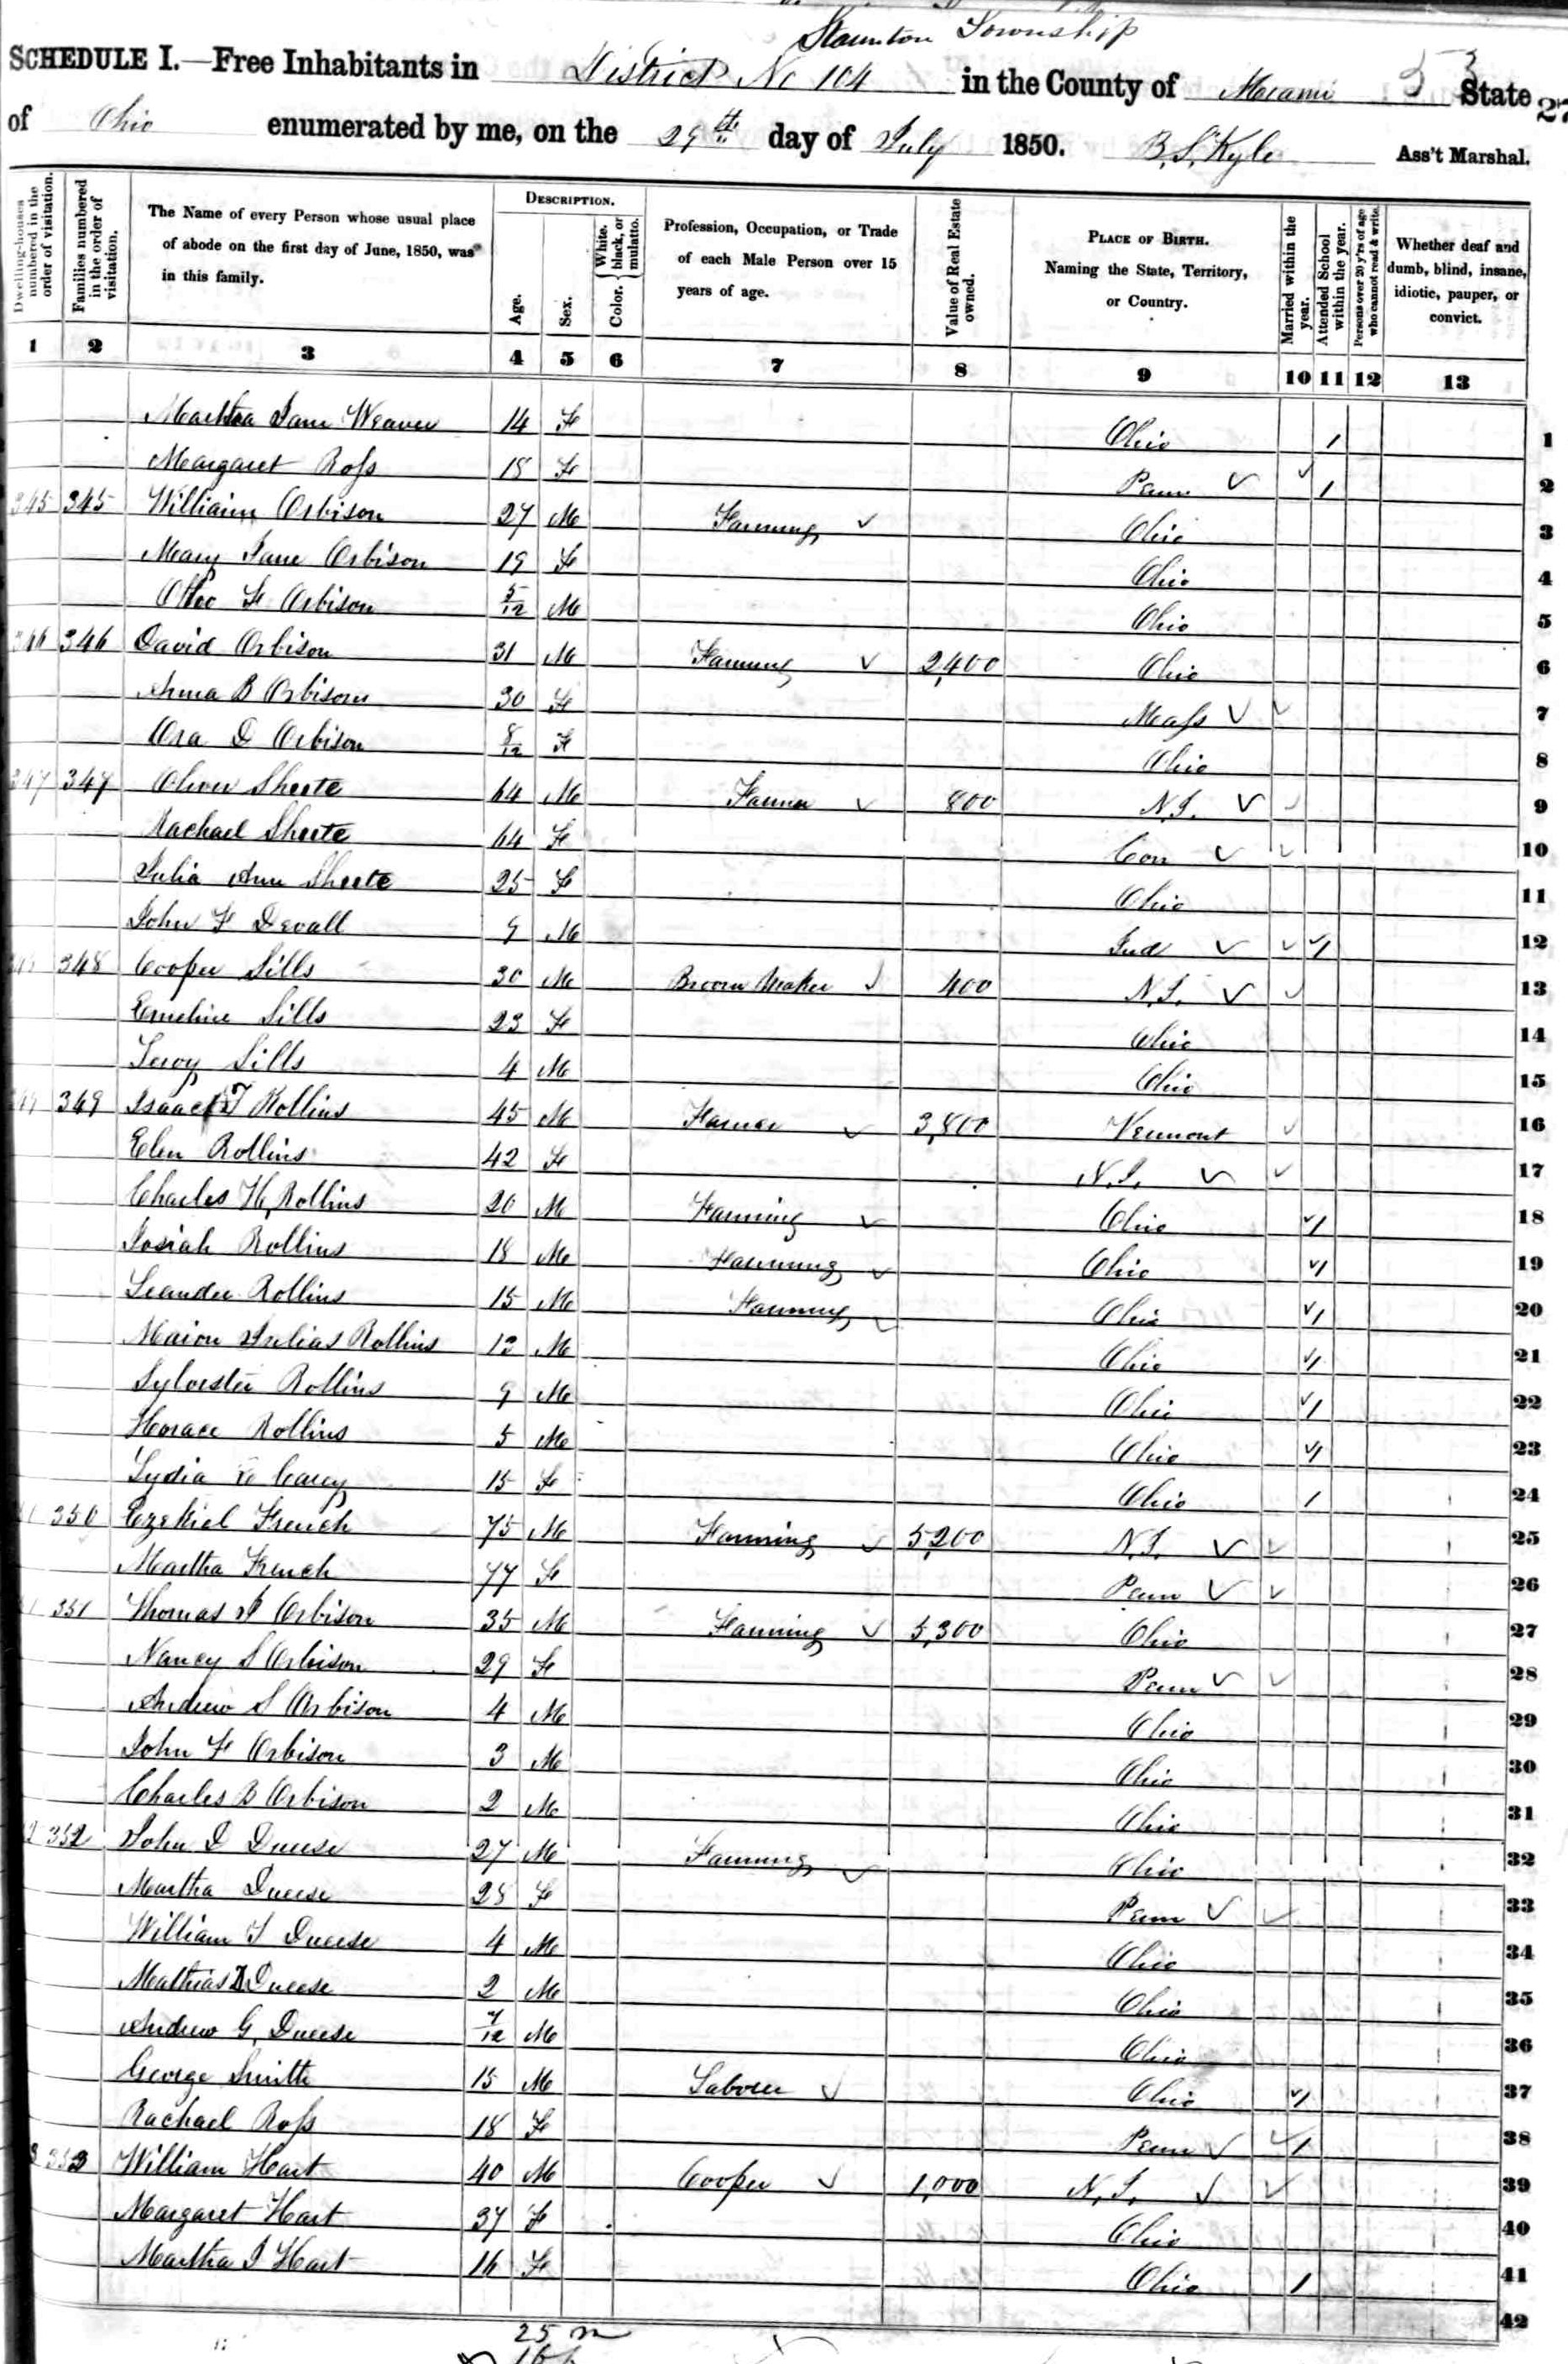 Staunton Township
SCHEDULE I.—Free Inhabitants in District No 104 in the County of Meami 53 State 27
of Ohio enumerated by me, on the 29th day of July 1850. B. S. Kyle Ass't Marshal.
Dwelling-houses numbered in the order of visitation.
Families numbered in the order of visitation.
The Name of every Person whose usual place of abode on the first day of June, 1850, was in this family.
DESCRIPTION.
Age.
Sex.
Color. { White, black, or mulatto.
Profession, Occupation, or Trade of each Male Person over 15 years of age.
Value of Real Estate owned.
PLACE OF BIRTH. Naming the State, Territory, or Country.
Married within the year.
Attended School within the year.
Persons over 20 y'rs of age who cannot read & write.
Whether deaf and dumb, blind, insane, idiotic, pauper, or convict.
1 2 3 4 5 6 7 8 9 10 11 12 13
Martha Jane Weaver 14 F Ohio / 1
Margaret Ross 18 F Penn ✓ ✓ / 2
345 345 William Orbison 27 M Farming ✓ Ohio 3
Mary Jane Orbison 19 F Ohio 4
F Orbison 5/12 M Ohio 5
346 346 David Orbison 31 M Farming ✓ 2,400 Ohio 6
Anna B Orbison 30 F Mass ✓ ✓ 7
Ora D Orbison 8/12 F Ohio 8
347 347 Oliver Sheete 64 M Farmer ✓ 800 N.J. ✓ ✓ 9
Rachael Sheete 64 F Con ✓ ✓ 10
Julia Ann Sheete 25 F Ohio 11
John F Devall 9 M Ind ✓ ✓ ✓/ 12
348 Cooper Sills 30 M Broom Maker ✓ 400 N.J. ✓ ✓ 13
Emeline Sills 23 F Ohio 14
Leroy Sills 4 M Ohio 15
349 349 Isaac T Rollins 45 M Farmer ✓ 3,800 Vermont ✓ 16
Elen Rollins 42 F N.J. ✓ ✓ 17
Charles H Rollins 20 M Farming ✓ Ohio ✓/ 18
Josiah Rollins 18 M Farming ✓ Ohio ✓/ 19
Leander Rollins 15 M Farming ✓ Ohio ✓/ 20
Marion Julias Rollins 12 M Ohio ✓/ 21
Sylvester Rollins 9 M Ohio ✓/ 22
Horace Rollins 5 M Ohio ✓/ 23
Lydia Carey 15 F Ohio / 24
350 Ezekiel French 75 M Farming ✓ 5,200 N.J. ✓ ✓ 25
Martha French 77 F Penn ✓ ✓ 26
351 Thomas J Orbison 35 M Farming ✓ 5,300 Ohio 27
Nancy S Orbison 29 F Penn ✓ ✓ 28
Andrew S Orbison 4 M Ohio 29
John F Orbison 3 M Ohio 30
Charles B Orbison 2 M Ohio 31
352 John D Dueese 27 M Farming ✓ Ohio 32
Martha Dueese 28 F Penn ✓ ✓ 33
William T Dueese 4 M Ohio 34
Mathias Dueese 2 M Ohio 35
Andrew G Dueese 7/12 M Ohio 36
George Smith 15 M Laborer ✓ Ohio ✓/ 37
Rachael Ross 18 F Penn ✓ ✓ / 38
353 William Hart 40 M Cooper ✓ 1,000 N.J. ✓ ✓ 39
Margaret Hart 37 F Ohio 40
Martha J Hart 16 F Ohio / 41
42
25 m
16 f